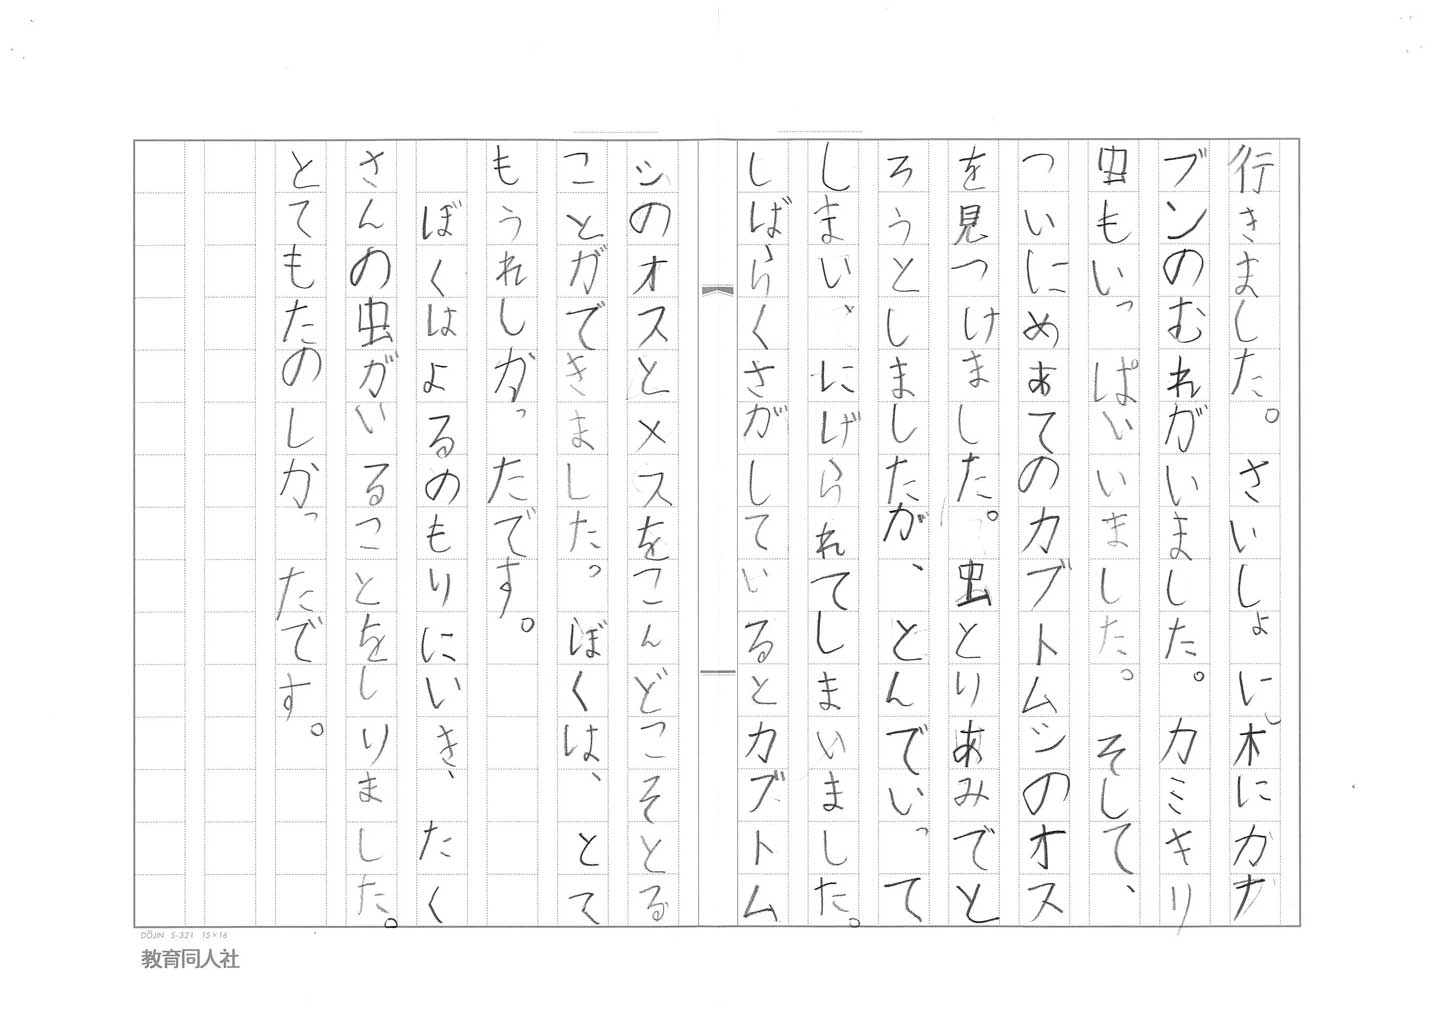 行きました。さいしょに木にカナ
ブンのむれがいました。カミキリ
虫もいっぱいいました。そして、
ついにめあてのカブトムシのオス
を見つけました。虫とりあみでと
ろうとしましたが、とんでいって
しまい、にげられてしまいました。
しばらくさがしているとカブトム
シのオスとメスをこんどこそとる
ことができました。ぼくは、とて
もうれしかったです。
ぼくはよるのもりにいき、たく
さんの虫がいることをしりました。
とてもたのしかったです。
DŌJIN S-321 15×16
教育同人社